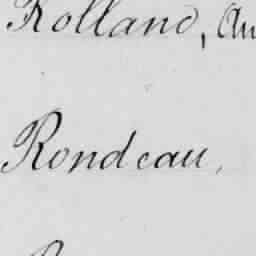 Rolland, Au
Rondeau,